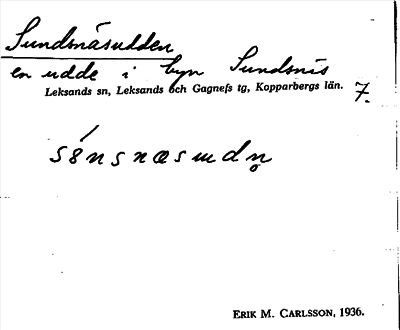 Sundsnäsudden
en udde i byn Sundsnäs
Leksands sn, Leksands och Gagnefs tg, Kopparbergs län.
7.
s8nsnæsudn̥
ERIK M. CARLSSON, 1936.